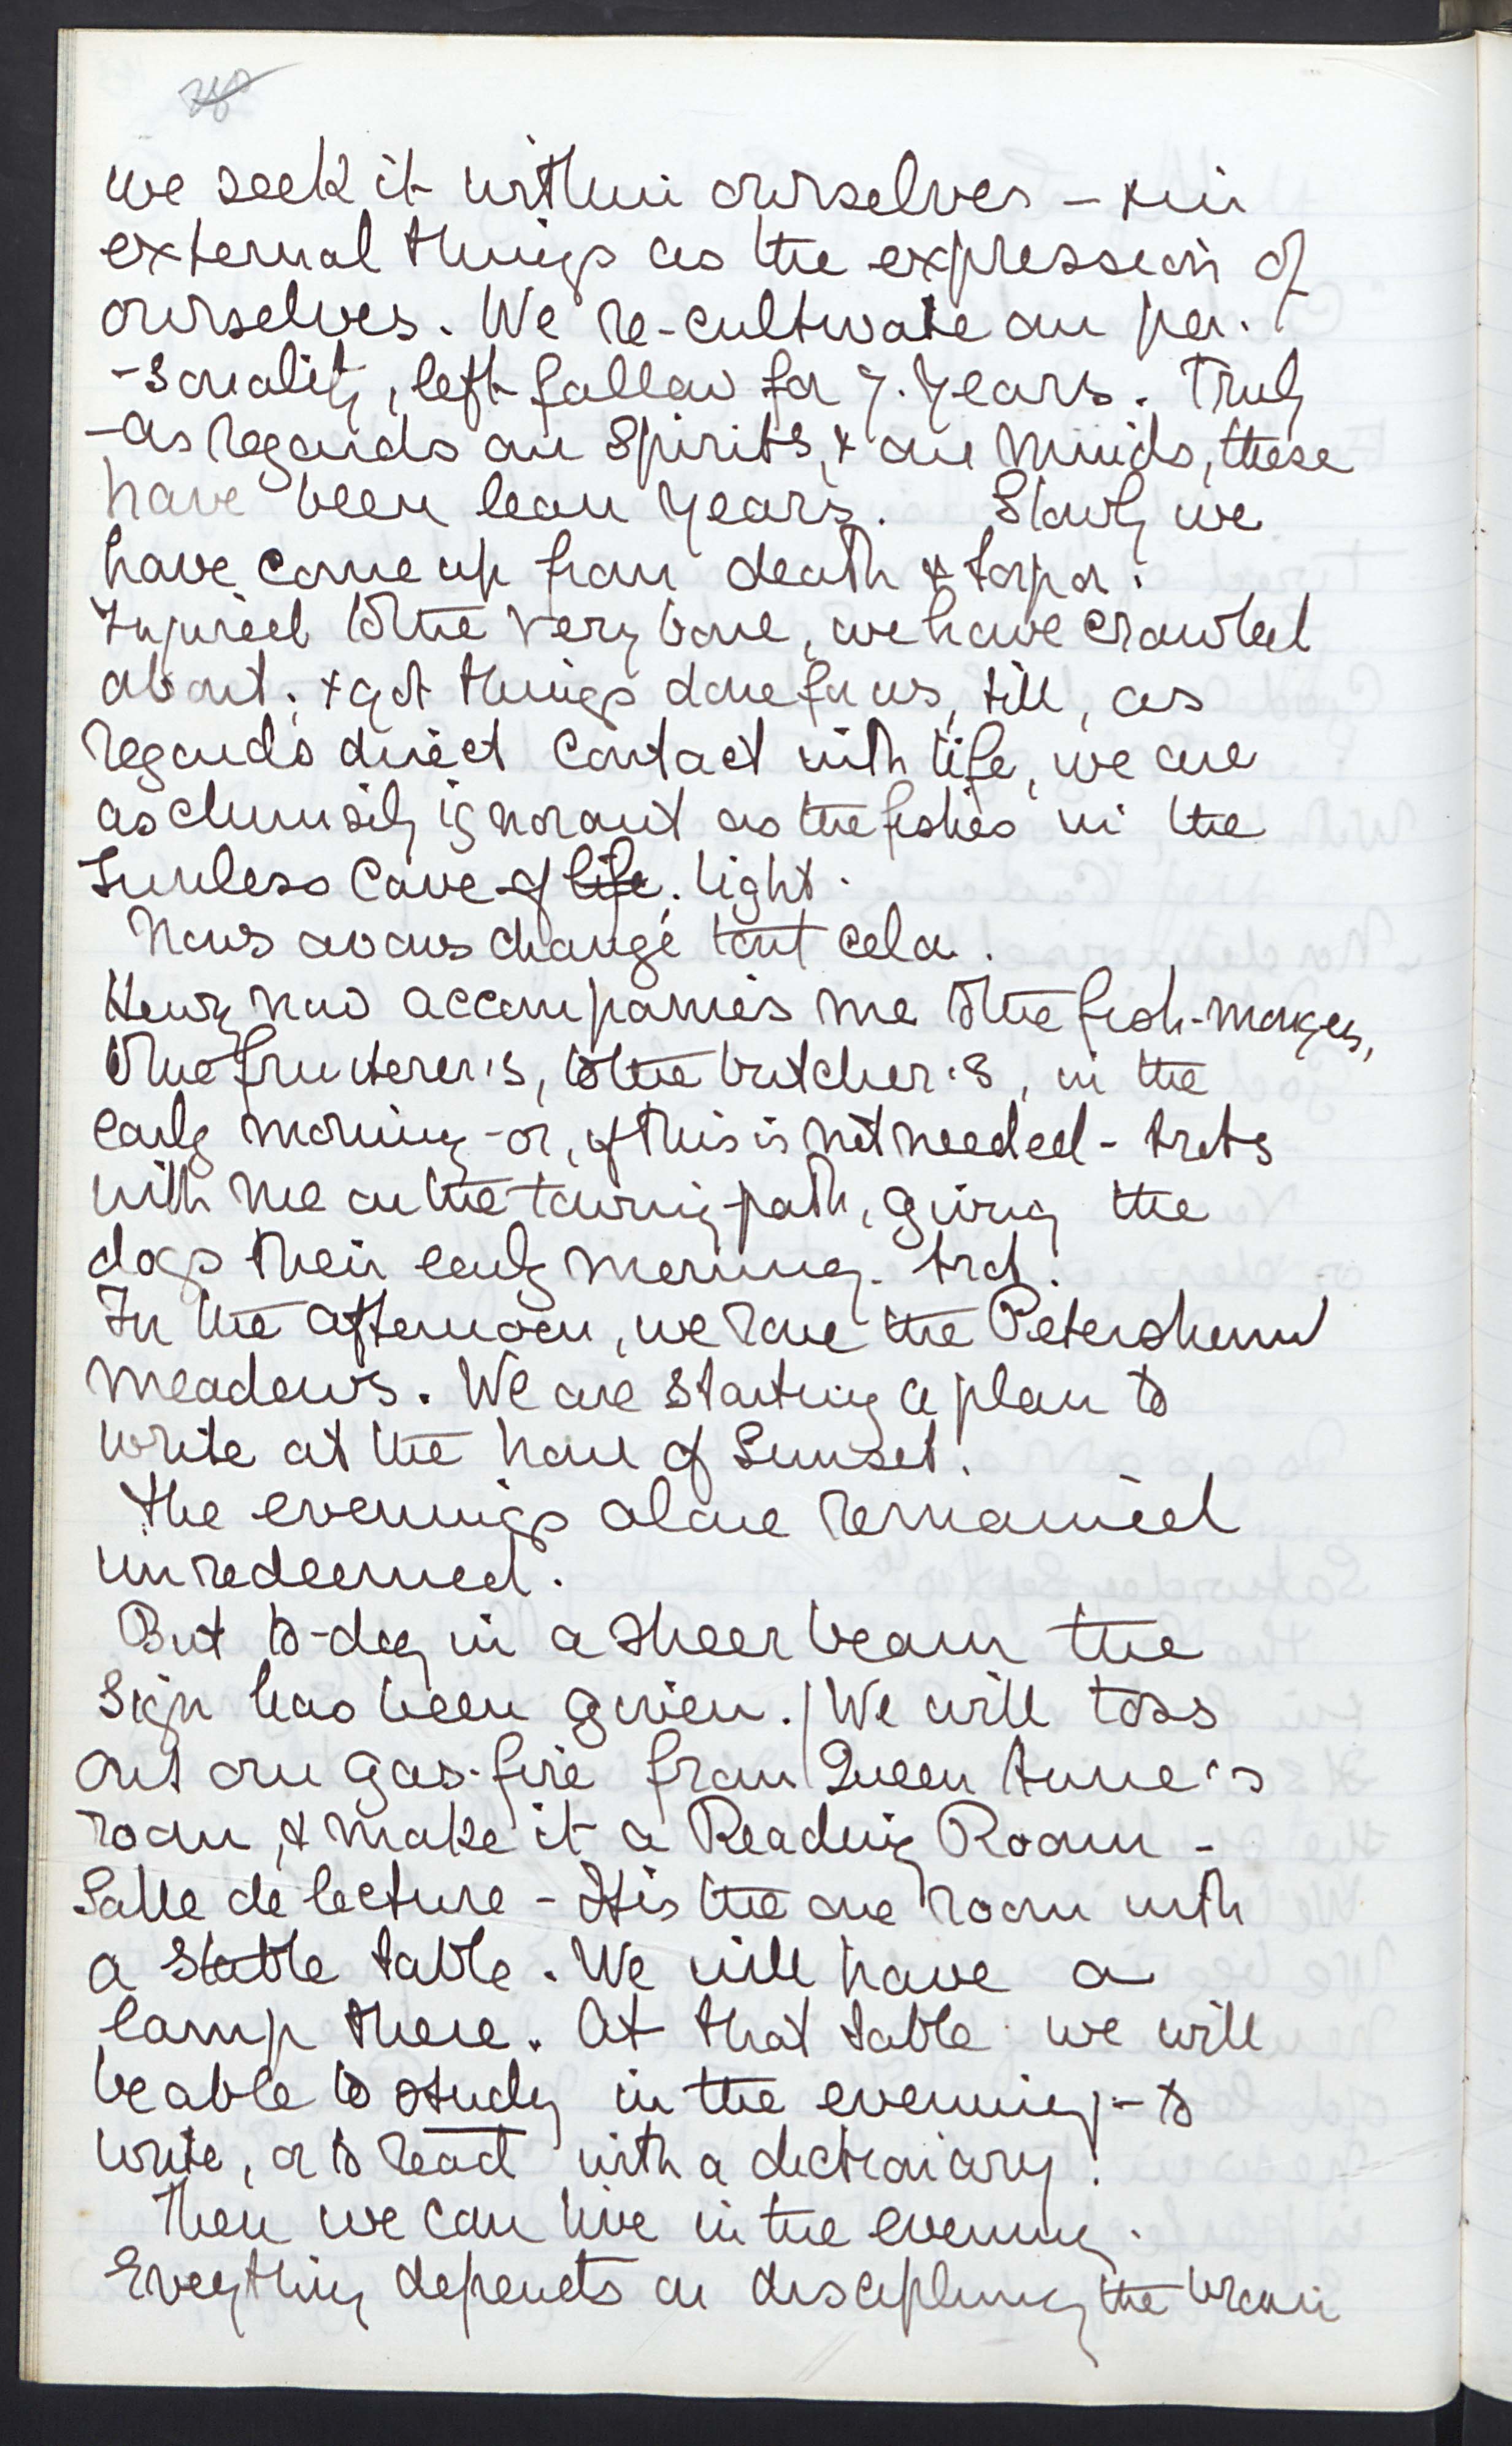 we seek it within ourselves – & in
external things as the expression of
ourselves. We re-cultivate our per-
-sonality, left fallow for 7. years. Truly
– as regards our spirits, & our minds, these
have been lean years. Slowly we
have come up from death & torpor.
Injured to the very bone, we have crawled
about, & got things done for us, till, as
regards direct contact with life, we are
as clumsily ignorant as the fishes in the
Sunless Cave of life. light.
Nous avons changé tout cela.
Henry now accompanies me to the fish-mongers,
to the fruiterer's, to the butcher's, in the
early morning – or, if this is not needed – trots
with me on the towing path, giving the
dogs their early morning trot.
In the afternoon, we rove the Petersham
meadows. We are starting a plan to
write at the hour of Sunset.
The evenings alone remained
unredeemed.
But to-day in a sheer beam the
sign has been given. / We will toss
out our gas-fire from Queen Anne's
room, & make it a Reading Room –
Salle de lecture – It is the one room with
a stable table. We will have a
lamp there. At that table we will
be able to study in the evening – to
write, or to read with a dictionary!
Then we can live in the evening.
Everything depends on disciplining the brain